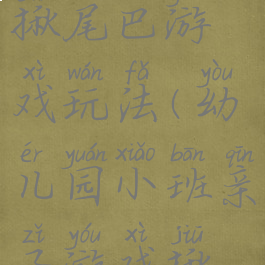 揪尾巴游
xì wán fǎ yòu
戏玩法(幼
ér yuán xiǎo bān qīn
儿园小班亲
zǐ yóu xì jiū
子游戏揪